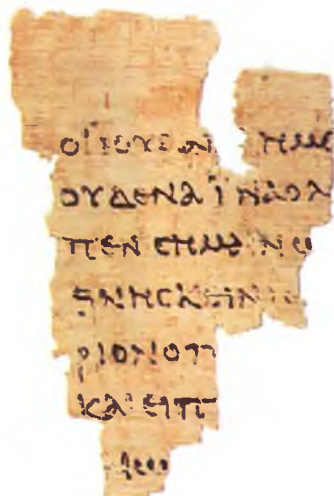 ΟΙ ΙΟΥΔΑΙ ΗΜΕ
ΟΥΔΕΝΑ ΙΝΑ Ο Λ
ΠΕΝ ΣΗΜΑΙΝΩ
ΘΝΗΣΚΕΙΝ
ΡΙΟΝ Ο Π
ΚΑΙ ΕΙΠ